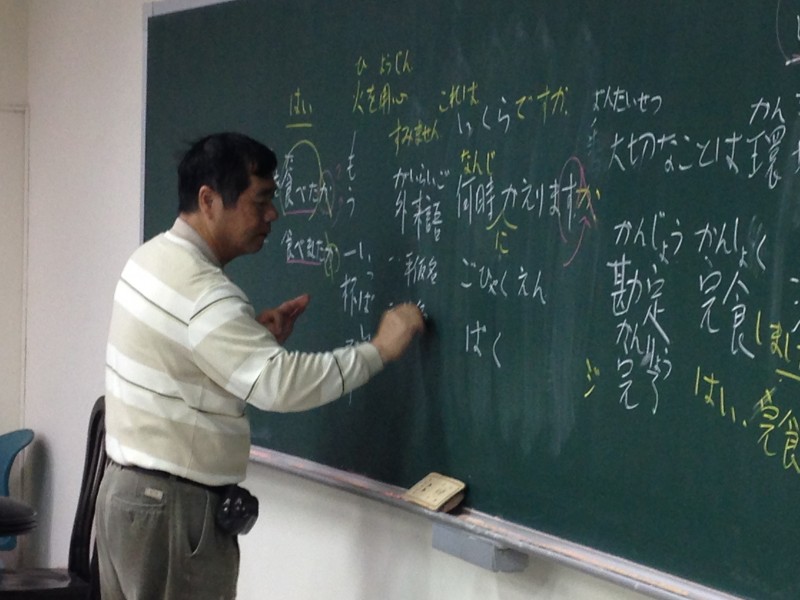 かん
大切なことは環
かんじょう
勘定
かんしょく
完食
かんりょう
完了
はい、完食
これは
いくらですか。
なんじ
何時かえりますか
に
ごひゃくえん
はく
すみません
がいらいご
外来語
平仮名
ひ ようじん
火を用心
もう
一杯
いっぱい
はい
食べたか
食べましたか